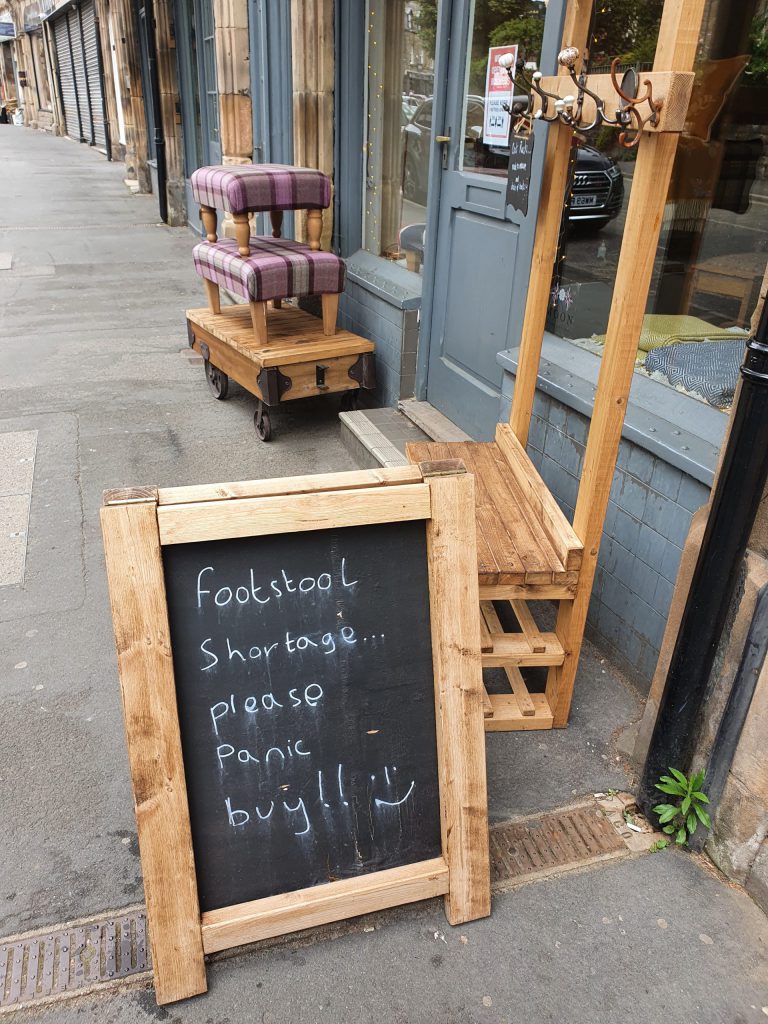 Footstool
Shortage...
please
Panic
buy!! :)